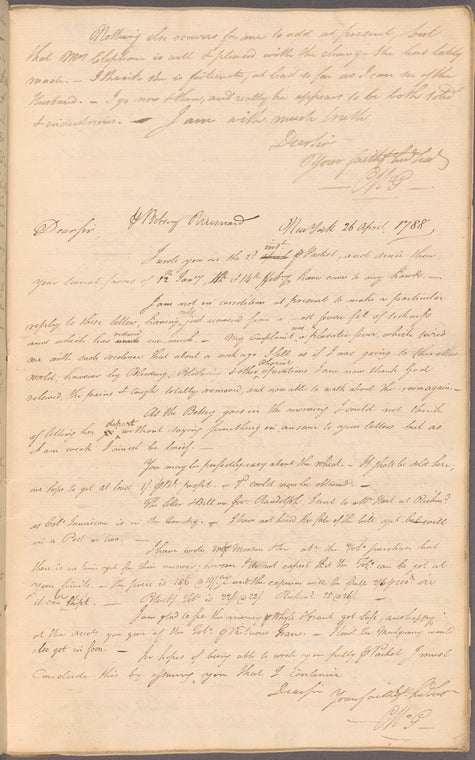 Nothing else occurs for me to add at present, but
that Mrs Clephane is well & pleased with the change she has lately
made. — I think she is fortunate, at least so far as I can see of the
Husband. — I go now & then, and really he appears to be both sober
& industrious. — I am with much truth
Dear Sir
Your faithf hul Serv
C Mc. G
Dear Sir, P Betsey New York 26 April 1788,
I wrote you on the 2d inst P Packet, and since then
your several favors of 12th Jany, 4th & 14th Febry have come to my hands. —
I am not in condition at present to make a particular
reply to these letters, having just recovered from a most severe fit of sickness
and which has reduced me much. — My complaint was a pleuratic fever, which seized
me with such violence that about a week ago I felt as if I was going to the other
world, however by Bleeding, Blistering & other physical operations I am now thank God
relieved, the pains & cough totally removed, and now able to walk about the room again. —
As the Betsey goes in the morning I could not think
of letting her depart without saying something in answer to your letters, but as
I am weak I must be brief. —
You may be perfectly easy about the wheat. — It shall be sold here,
we hope to get at least profit. — could now be obtained. —
The letter & Bill on Gov. Randolph I sent to Mr. at Richmd
as Col. Jamieson is in the Country. — I have not heard the fate of the bill yet but will
in a Post or two. —
I have wrote Morton & Co abt. the Tobo. purchase but
there is no time yet for their answer, however I do not expect that the Tobo. can be got at
your limits. — the price is and the exportn will be full before
it can be shipt. — Petersbg Tobo is 22/6 @ 23/. Richmd. 25 @ 26/.
I am glad to see the money P Whyte & Grand got safe, am happy
at the acct. you give of the Tobo. P Grace. — I trust the Montgomery would
also get in from. —
In hopes of being able to write you fully P Packet I must
conclude this by assuring you that I continue
Dear Sir Your faithf hul Serv
C Mc. G